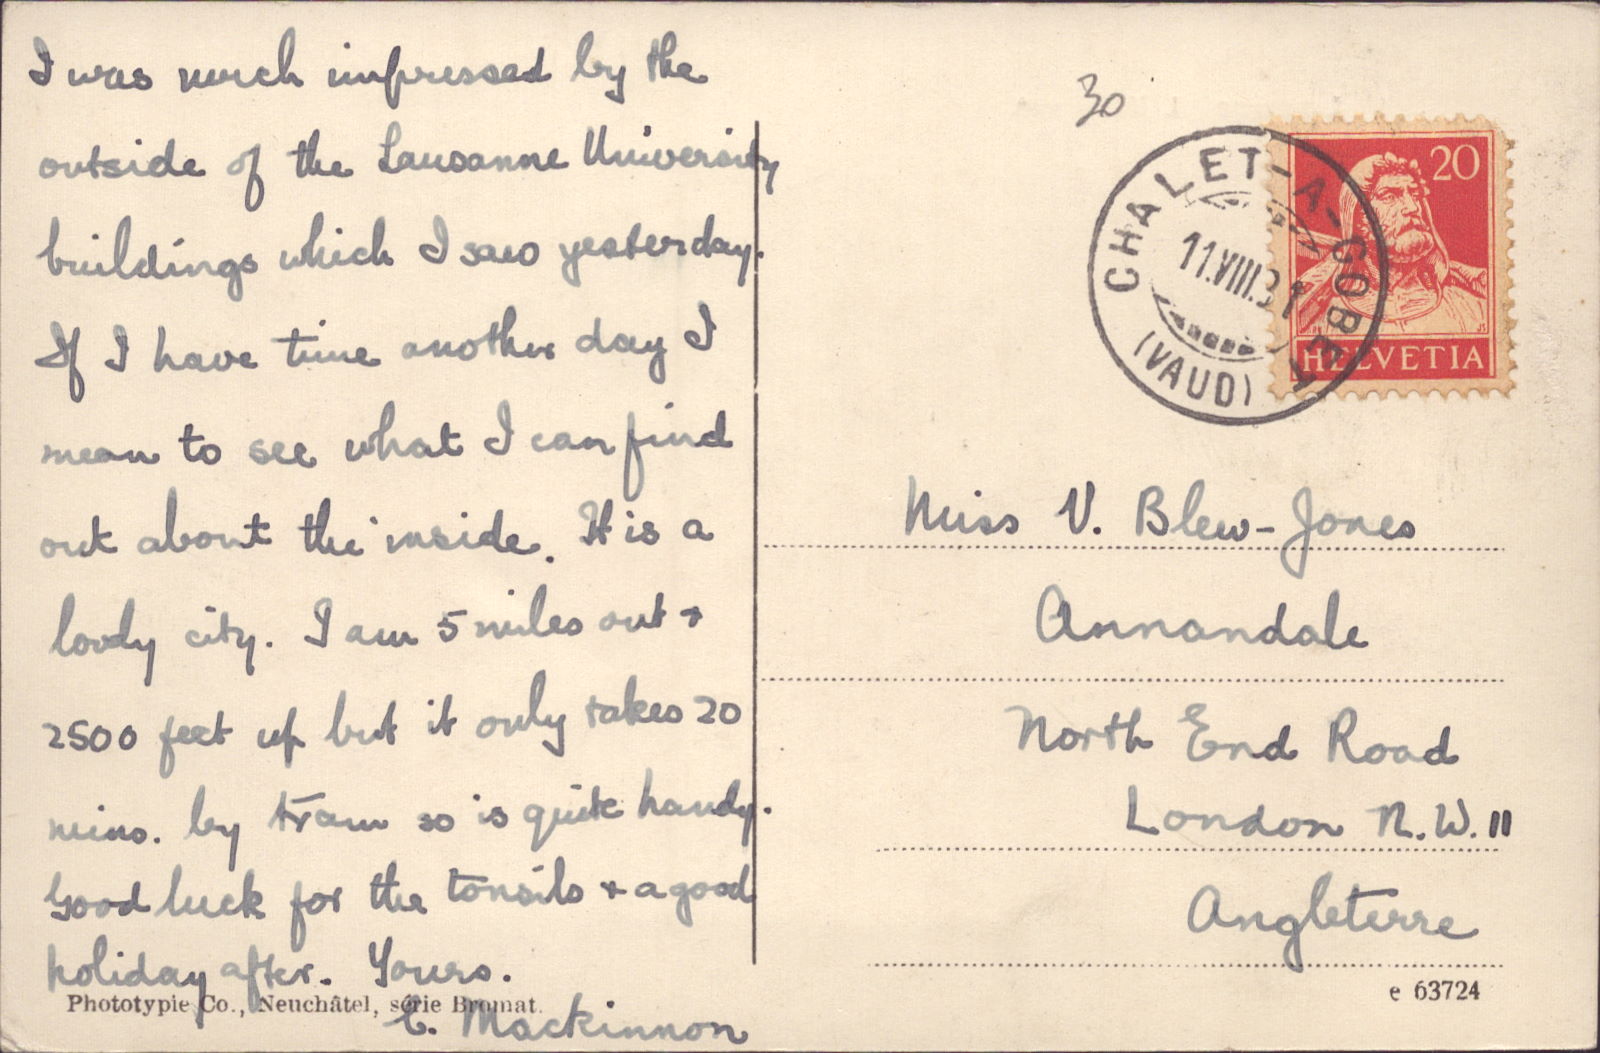 I was much impressed by the
outside of the Lausanne University
buildings which I saw yesterday.
If I have time another day I
mean to see what I can find
out about the inside. It is a
lovely city. I am 5 miles out +
2500 feet up but it only takes 20
mins. by tram so is quite handy.
Good luck for the tonsils + a good
holiday after. Yours.
C. Mackinnon
Phototypie Co., Neuchâtel, série Bromat.
30
CHALET-A-GOBET
11.VIII.31
(VAUD)
20
HELVETIA
Miss V. Blew-Jones
Annandale
North End Road
London N.W. 11
Angleterre
e 63724